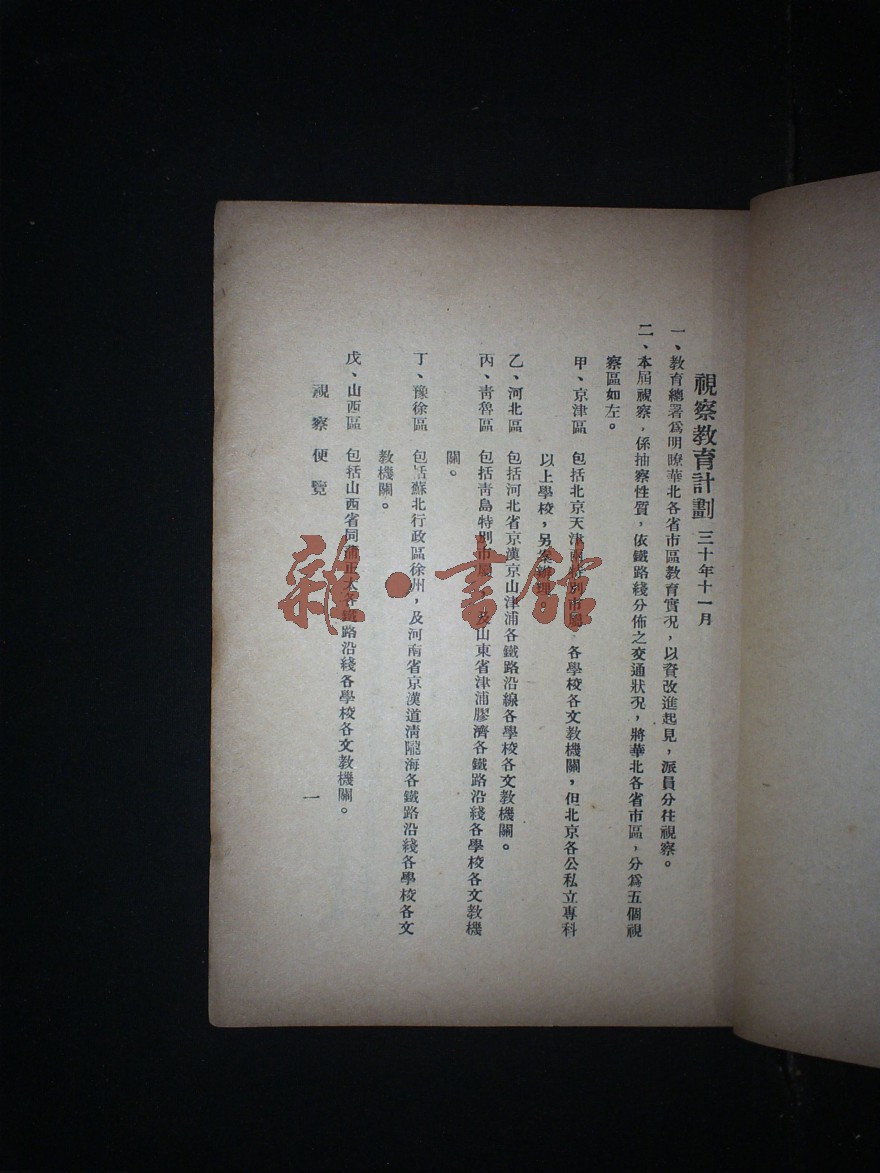 視察教育計劃 三十年十一月
一、教育總署爲明瞭華北各省市區教育實况，以資改進起見，派員分往視察。
二、本屆視察，係抽察性質，依鐵路綫分佈之交通狀况，將華北各省市區，分爲五個視
察區如左。
甲、京津區 包括北京天津兩特別市 各學校各文教機關，但北京各公私立專科
以上學校，另案辦理
乙、河北區 包括河北省京漢京山津浦各鐵路沿線各學校各文教機關。
丙、靑魯區 包括靑島特別市 及山東省津浦膠濟各鐵路沿綫各學校各文教機
關。
丁、豫徐區 包括蘇北行政區徐州，及河南省京漢道淸隴海各鐵路沿綫各學校各文
教機關。
戊、山西區 包括山西省同蒲正太各鐵路沿綫各學校各文教機關。
視察便覽
一
雜·書館